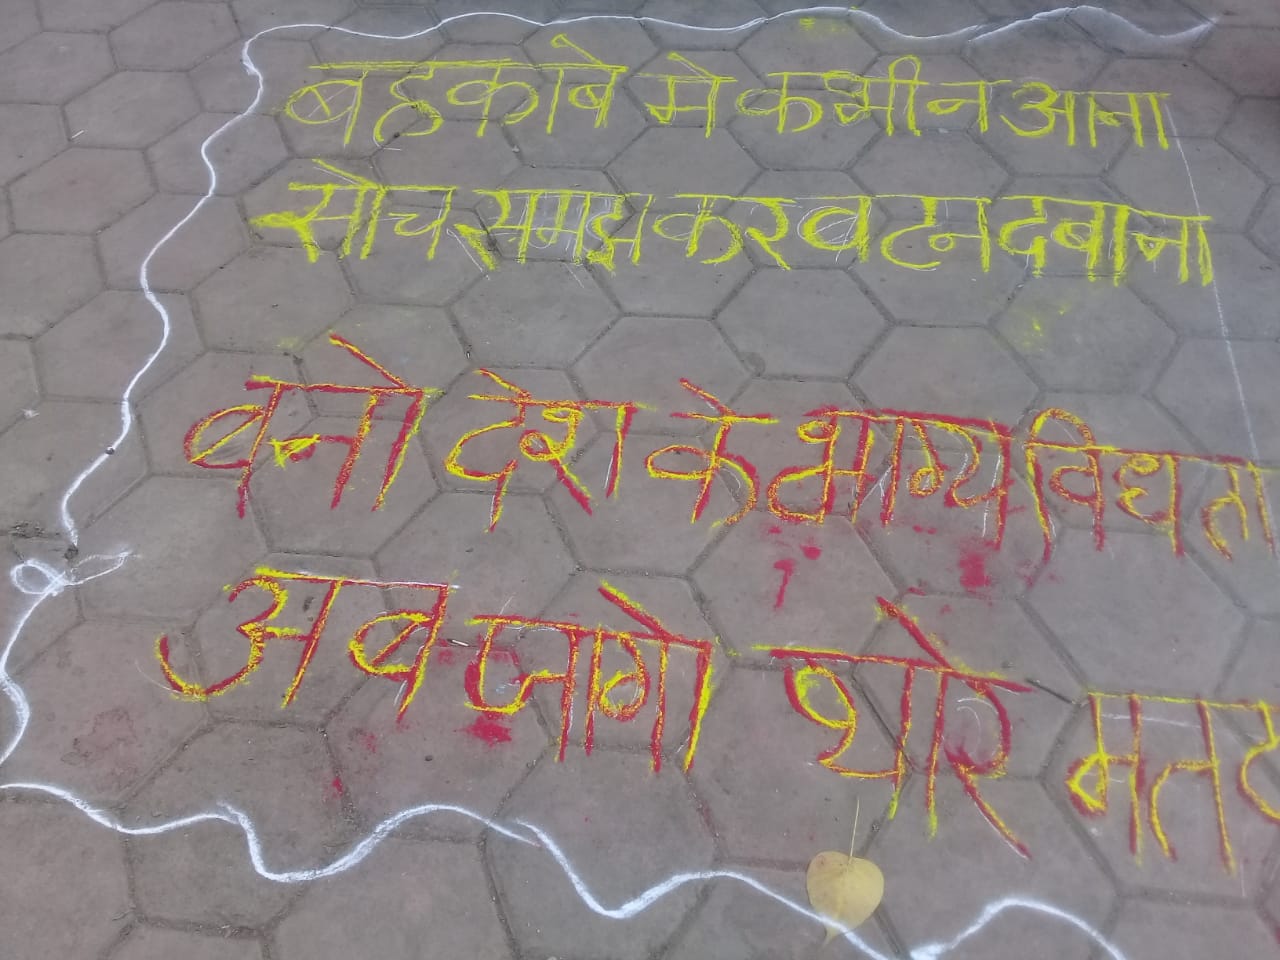 बहकाबे मे कभी न आना
सोच समझ कर बटन दबाना
बनो देश के भाग्य विधाता
अब जागो